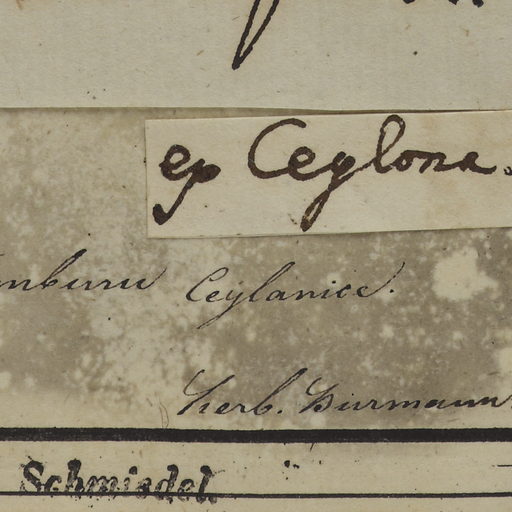 ex Ceylona.
Ceylanice.
Herb. Burmann
Schmiedel.